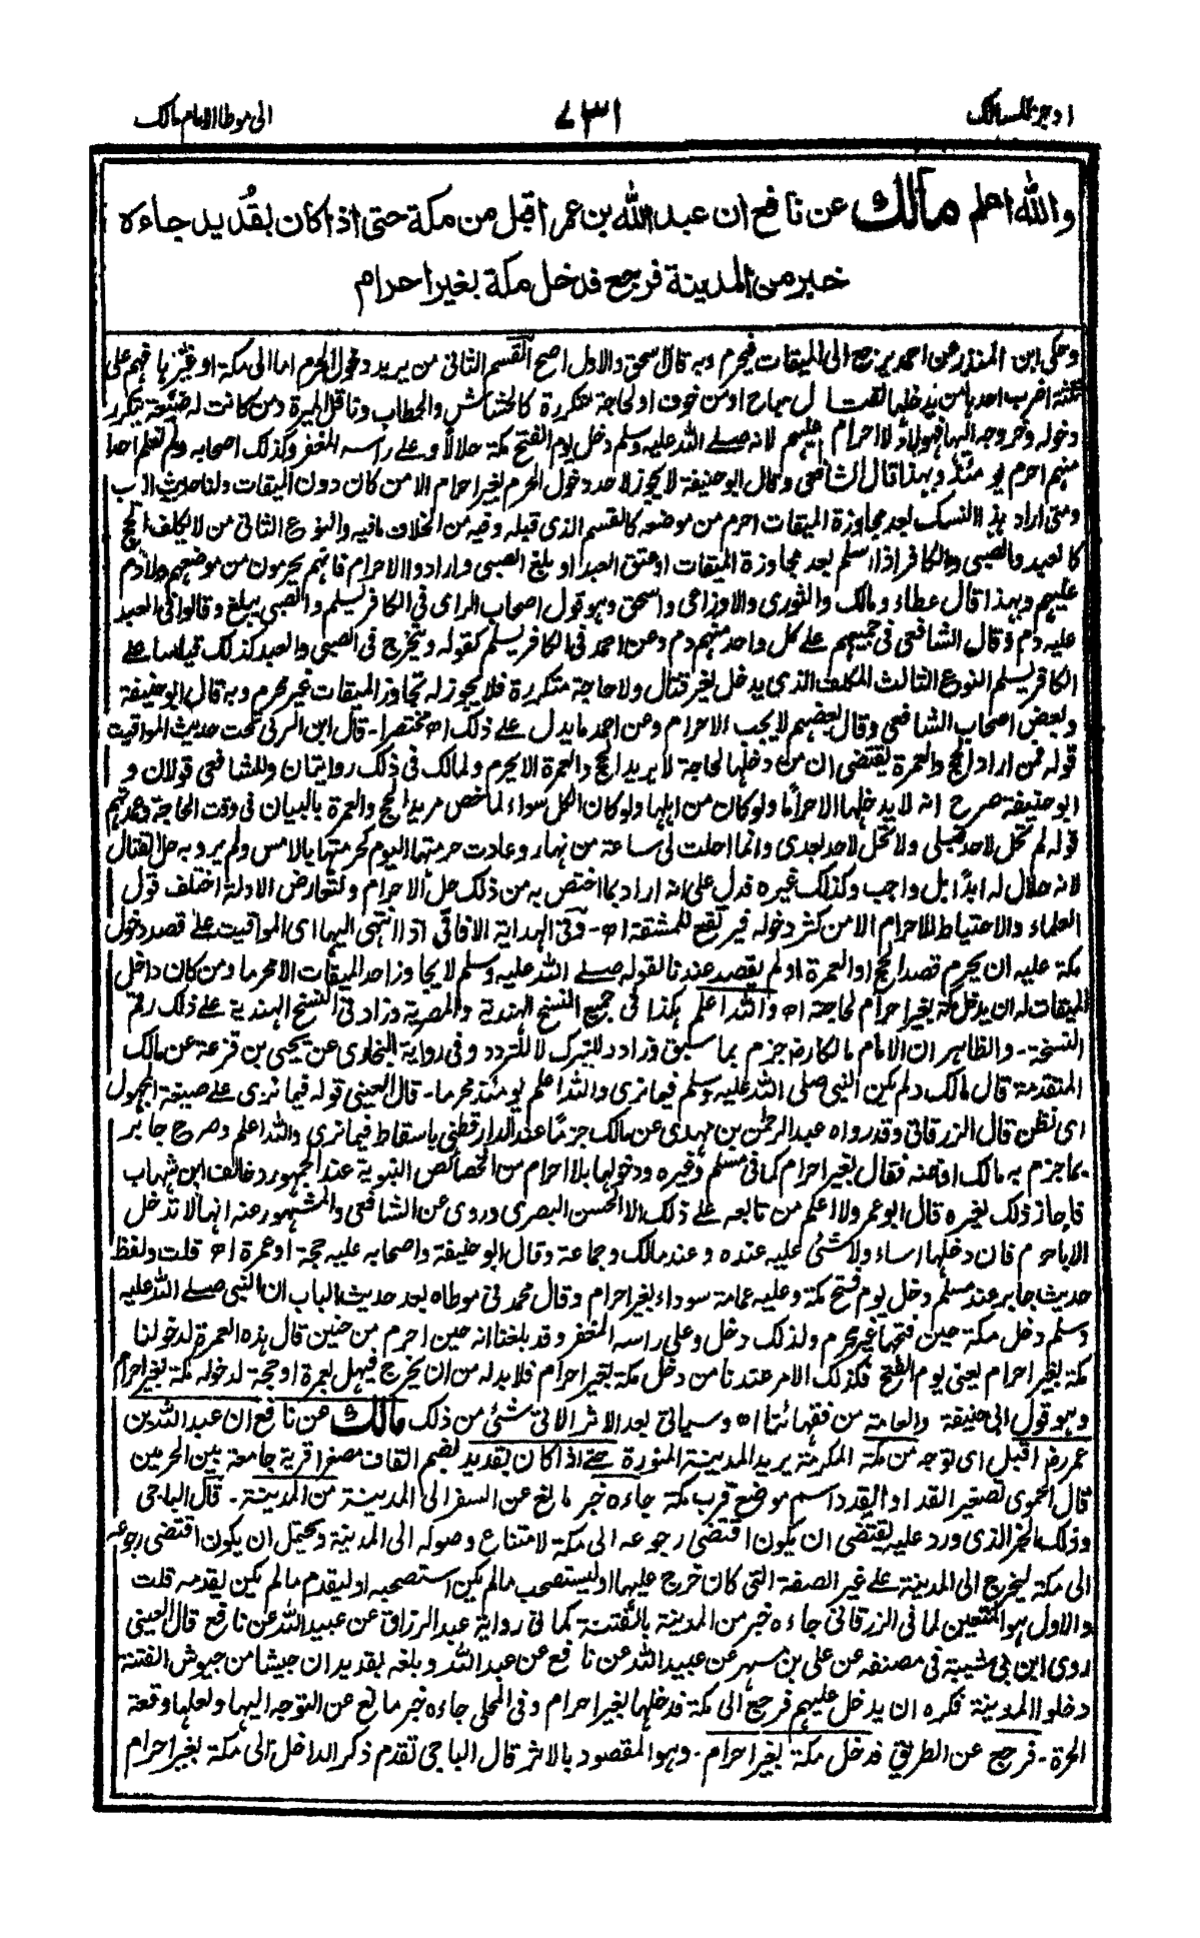 اوجز المسالك
٧٣١
الى موطا الامام مالك
والله اعلم مالك عن نافع ان عبد الله بن عمر اقبل من مكة حتى اذا كان بقُديد جاءه
خبر من المدينة فرجع فدخل مكة بغير احرام
وحكى ابن المنذر عن احمد يرجع الى الميقات فيحرم وبه قال اسحق والاول اصح القسم الثانى من يريد دخول الحرم اما الى مكة او غيرها فهم على
ثلثة اضرب احدها من يدخلها لقتال مباح او من خوف او لحاجة متكررة كالحشاش والحطاب وناقل الميرة ومن كانت له ضيعة يتكرر
دخوله وخروجه اليها فهولاء لا احرام عليهم لانه صلے الله عليه وسلم دخل يوم الفتح مكة حلالاً وعلے راسه المغفر وكذلك اصحابه ولم نعلم احدا
منهم احرم يومئذ وبهذا قال الشافعى وقال ابو حنيفة لا يجوز لاحد دخول الحرم بغير احرام الا من كان دون الميقات ولنا حديث الباب
ومتى اراد هذا النسك بعد مجاوزة الميقات احرم من موضعه كالقسم الذى قبله وفيه من الخلاف مافيه والنوع الثانى من لا يكلف الحج
كالعبد والصبى والكافر اذا اسلم بعد مجاوزة الميقات او عتق العبد او بلغ الصبى وارادوا الاحرام فانهم يحرمون من موضعهم ولا دم
عليهم وبهذا قال عطاء ومالك والثورى والاوزاعى واسحق وهو قول اصحاب الراى فى الكافر يسلم والصبى يبلغ وقالوا فى العبد
عليه دم وقال الشافعى فى جميعهم علے كل واحد منهم دم وعن احمد فى الكافر يسلم كقوله ويتخرج فى الصبى والعبد كذلك قياسا علے
الكافر يسلم النوع الثالث المكلف الذى يدخل بغير قتال ولا حاجة متكررة فلا يجوز له تجاوز الميقات غير محرم وبه قال ابو حنيفة
وبعض اصحاب الشافعى وقال بعضهم لا يجب الاحرام وعن احمد ما يدل علے ذلك اھ مختصرا ـ قال ابن العربى تحت حديث المواقيت
قوله فمن اراد الحج والعمرة يقتضى ان من دخلها لحاجة لا يريد الحج والعمرة الا يحرم ولمالك فى ذلك روايتان وللشافعى قولان و
ابو حنيفة صرح انه لا يدخلها الا حراما ولو كان من اهلها ولو كان الكل سواء لما خص مريد الحج والعمرة بالبيان فى وقت الحاجة وعمدتهم
قوله لم تحل لاحد قبلى ولا تحل لاحد بعدى وانما احلت لى ساعة من نهار وعادت حرمتها اليوم كحرمتها بالامس ولم يرد به حل القتال
لانه حلال له ابدًا بل واجب وكذلك غيره فدل على انه اراد بما اختص به من ذلك حل الاحرام ولتعارض الادلة اختلف قول
العلماء والاحتياط للاحرام الا من كثر دخوله فيرتفع للمشقة اھ ـ وفى الهداية الآفاقى اذا انتهى اليها اى المواقيت علے قصد دخول
مكة عليه ان يحرم قصد الحج او العمرة او لم يقصد عندنا لقوله صلے الله عليه وسلم لا يجاوز احد الميقات الا محرما ومن كان داخل
الميقات له ان يدخل مكة بغير احرام لحاجته اھ والله اعلم هكذا فى جميع النسخ الهندية والمصرية وزاد فى النسخ الهندية علے ذلك رقم
النسخة ـ والظاهر ان الامام مالكا رضـ جزم بما سبق وزاد للتبرك لا للتردد وفى رواية البخارى عن يحيى بن قزعة عن مالك
المتقدمة قال مالك ولم يكن النبى صلى الله عليه وسلم فيما نرى والله اعلم يومئذ محرما ـ قال العينى قوله فيما نرى علے صيغة المجهول
اى نظن قال الزرقانى وقد رواه عبد الرحمٰن بن مهدى عن مالك جزمًا عند الدارقطنى باسقاط فيما نرى والله اعلم وصرح جابر
بما جزم به مالك افاعنه فقال بغير احرام كما فى مسلم وغيره ودخولها بلا احرام من الخصائص النبوية عند الجمهور وخالف ابن شهاب
فاجاز ذلك لغيره قال ابو عمر ولا اعلم من تابعه علے ذلك الا الحسن البصرى وروى عن الشافعى والمشهور عنه انها لا تدخل
الا باحرام فان دخلها اساء ولا شئ عليه عنده وعند مالك وجماعة وقال ابو حنيفة واصحابه عليه حجة او عمرة اھ قلت ولفظ
حديث جابر عند مسلم دخل يوم فتح مكة وعليه عمامة سوداء بغير احرام وقال محمد فى موطاه بعد حديث الباب ان النبى صلے الله عليه
وسلم دخل مكة حين فتحها غير محرم ولذلك دخل وعلى راسه المغفر وقد بلغنا انه حين احرم من حنين قال هذه العمرة لدخولنا
مكة بغير احرام يعنى يوم الفتح فكذلك الامر عندنا من دخل مكة بغير احرام فلا بد له من ان يخرج فيهل بعمرة او حجة لدخوله مكة بغير احرام
وهو قول ابى حنيفة والعامة من فقهائنا اھ وسياتى بعد الاثر الاتى شئ من ذلك مالك عن نافع ان عبد الله بن
عمر رضـ اقبل اى توجه من مكة المكرمة يريد المدينة المنورة حتے اذا كان بقديد بضم القاف مصغرا قرية جامعة بين الحرمين
قال الحموى تصغير القد او القدد اسم موضع قرب مكة جاءه خبر مانع عن السفر الى المدينة من المدينة ـ قال الباجى
وذلك الخبر الذى ورد عليه يقتضى ان يكون اقتضى رجوعه الى مكة لامتناع وصوله الى المدينة ويحتمل ان يكون اقتضى رجوعه
الى مكة ليخرج الى المدينة علے غير الصفة التى كان خرج عليها او ليستصحب مالم يكن استصحبه او ليقدم مالم يكن ليقدمه قلت
والاول هو المتعين لما فى الزرقانى جاءه خبر من المدينة بالفتنة كما فى رواية عبد الرزاق عن عبيد الله عن نافع قال العينى
روى ابن ابى شيبة فى مصنفه عن على بن مسهر عن عبيد الله عن نافع عن عبد الله وبلغه بقديد ان جيشا من جيوش الفتنة
دخلوا المدينة فكره ان يدخل عليهم فرجع الى مكة فدخلها بغير احرام وفى المحلى جاءه خبر مانع عن التوجه اليها ولعلها وقعة
الحرة ـ فرجع عن الطريق فدخل مكة بغير احرام ـ وهو المقصود بالاثر قال الباجى تقدم ذكر الداخل الى مكة بغير احرام